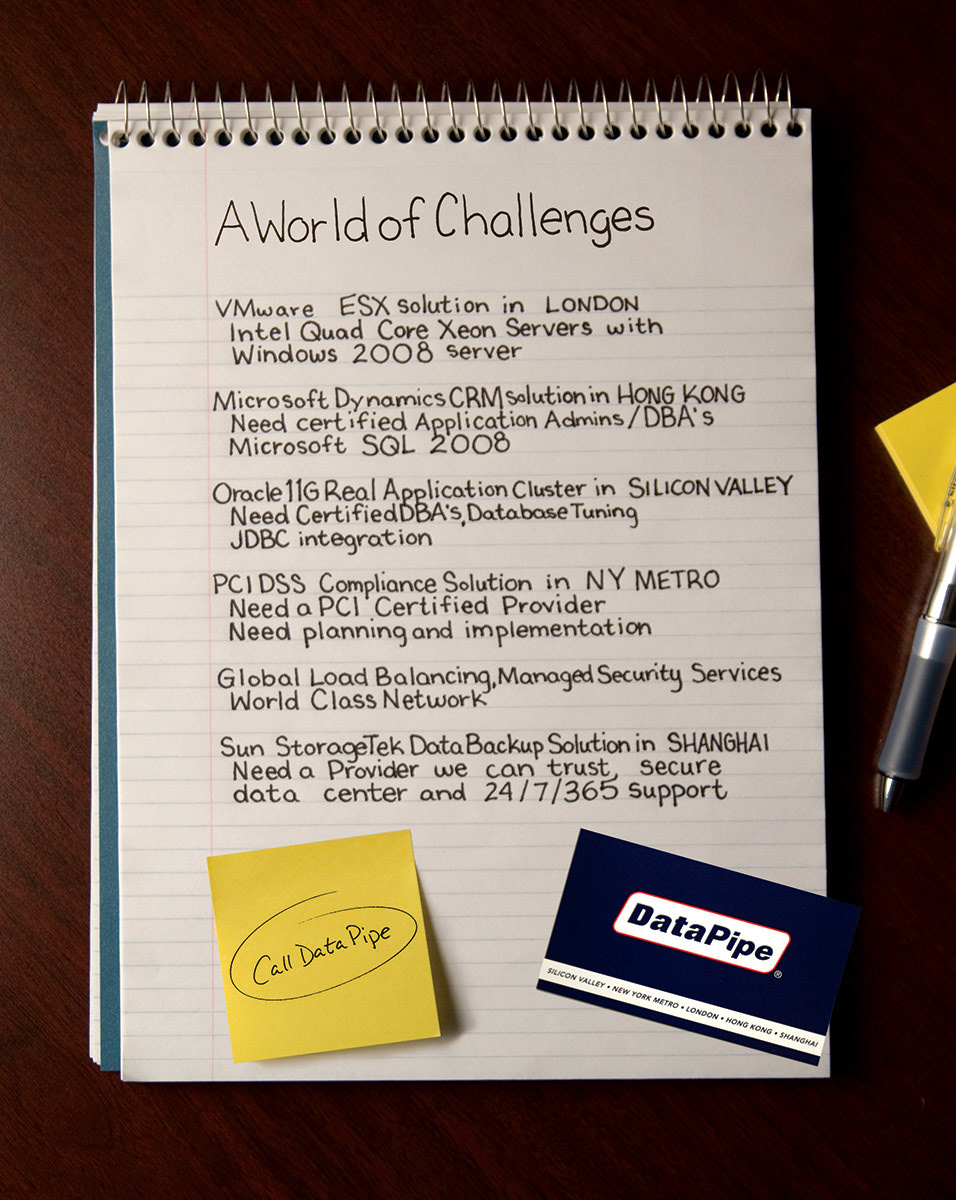 A World of Challenges
VMware ESX solution in LONDON
Intel Quad Core Xeon Servers with
Windows 2008 server
Microsoft Dynamics CRM solution in HONG KONG
Need certified Application Admins/DBA's
Microsoft SQL 2008
Oracle 11G Real Application Cluster in SILICON VALLEY
Need Certified DBA's, Database Tuning
JDBC integration
PCI DSS Compliance Solution in NY METRO
Need a PCI Certified Provider
Need planning and implementation
Global Load Balancing, Managed Security Services
World Class Network
Sun StorageTek Data Backup Solution in SHANGHAI
Need a Provider we can trust, secure
data center and 24/7/365 support
Call DataPipe
DataPipe®
SILICON VALLEY • NEW YORK METRO • LONDON • HONG KONG • SHANGHAI